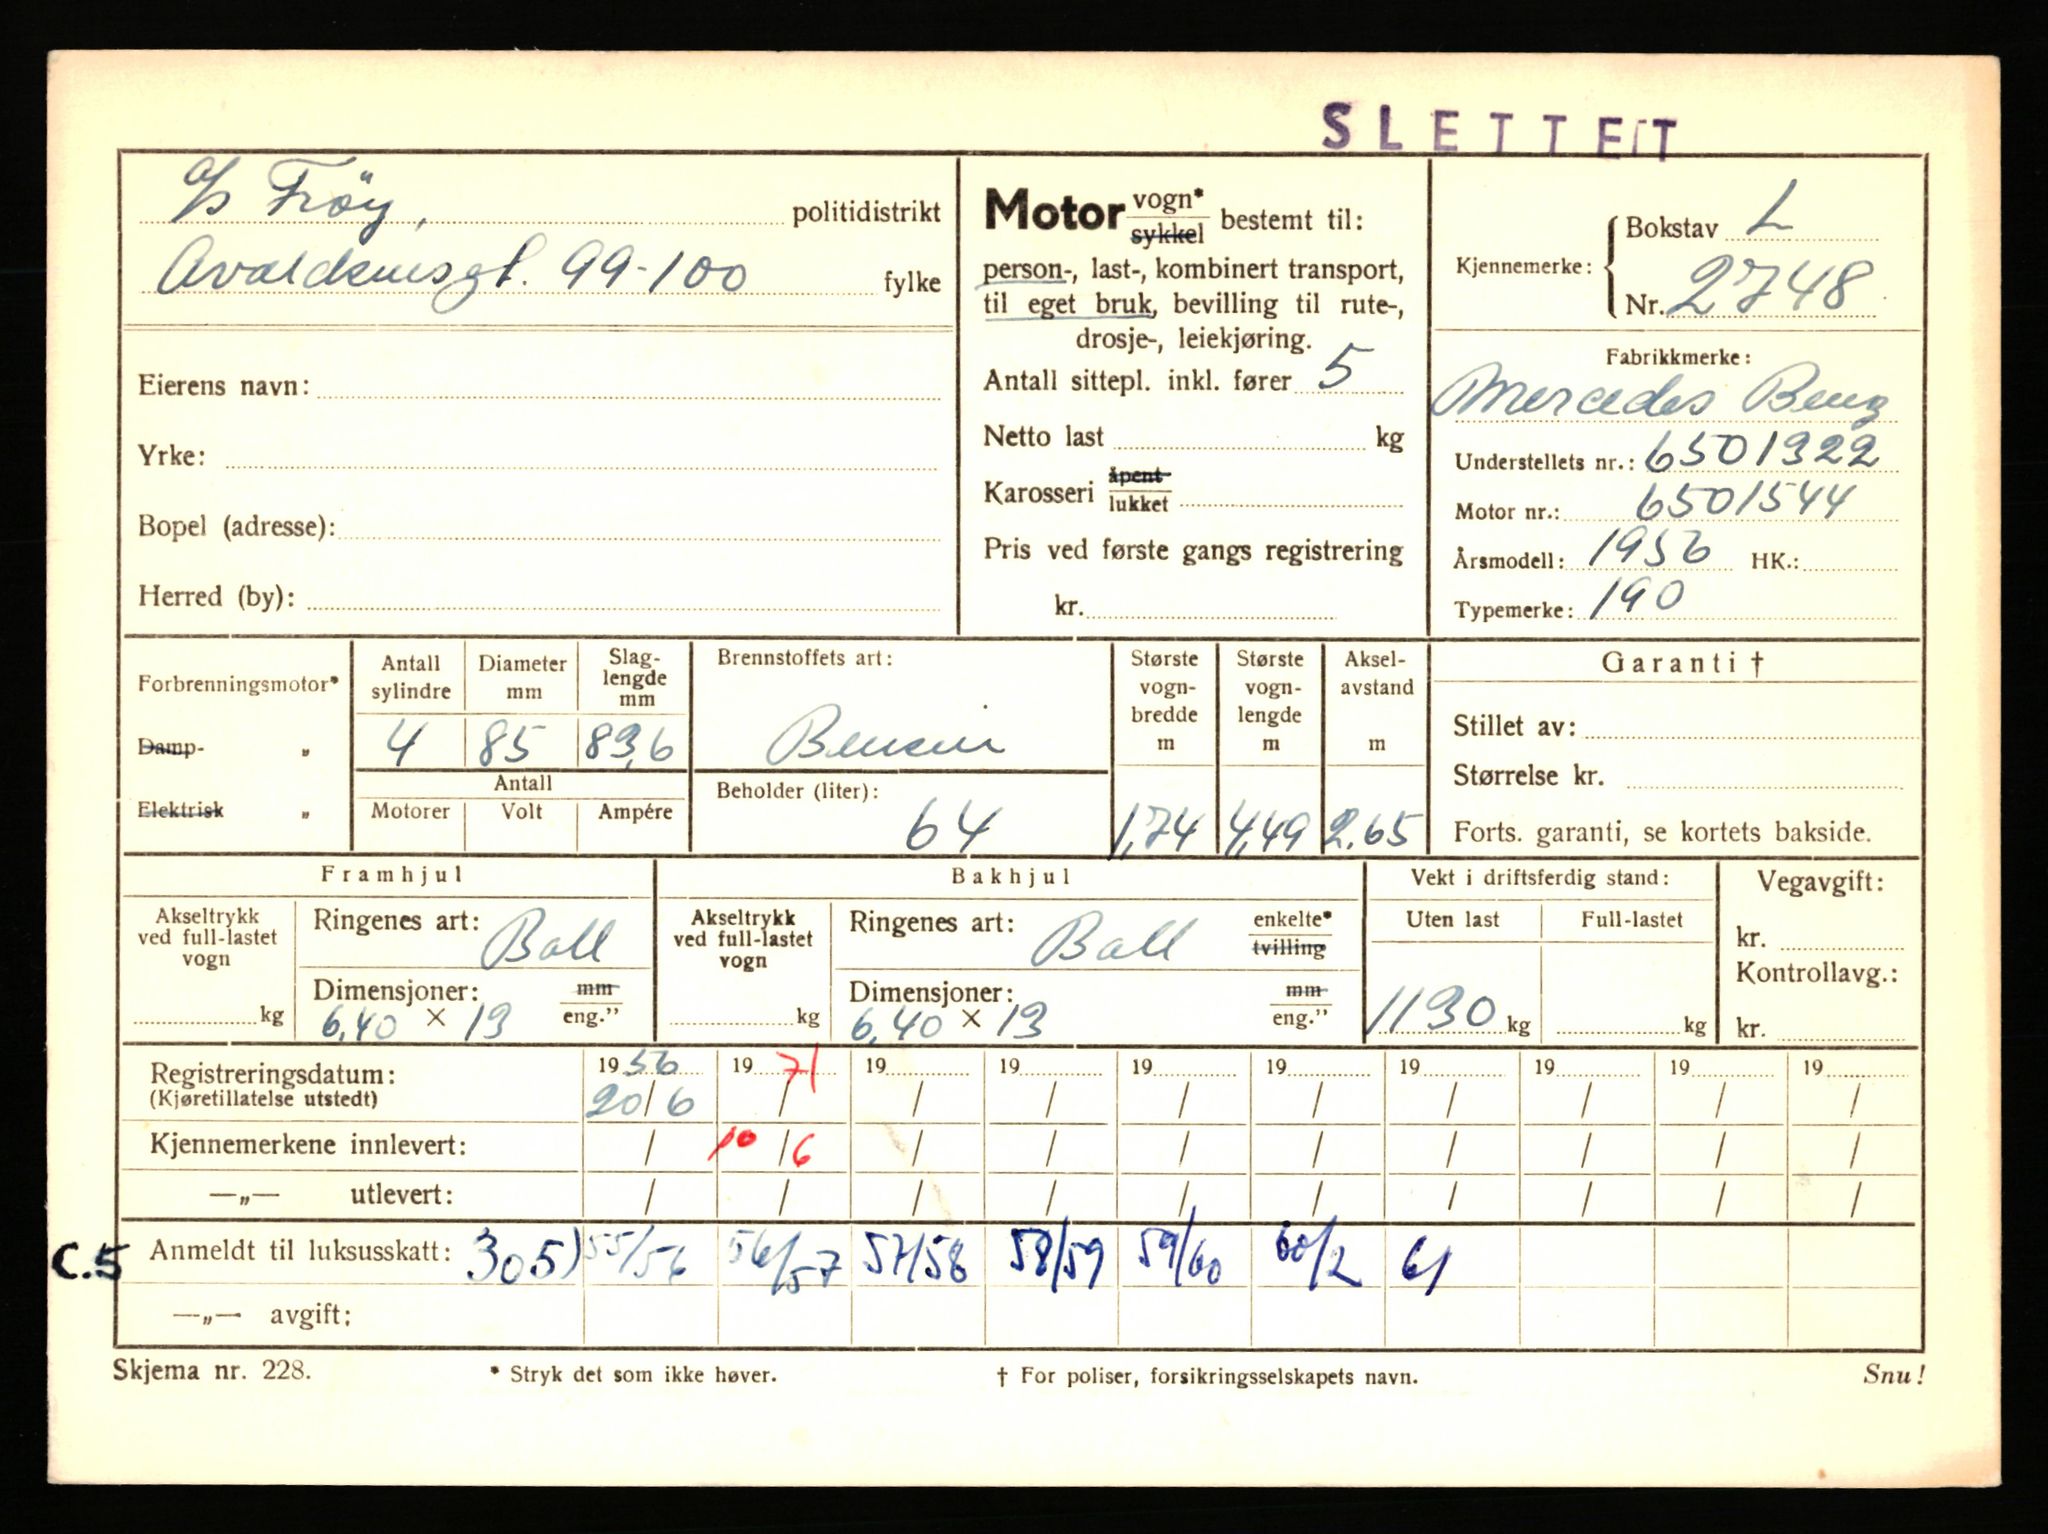 SLETTET
A/S Frøy, politidistrikt
Avaldsnesgt. 99-100 fylke
Eierens navn:
Yrke:
Bopel (adresse):
Herred (by):
Motor vogn* sykkel bestemt til:
person-, last-, kombinert transport,
til eget bruk, bevilling til rute-,
drosje-, leiekjøring.
Antall sittepl. inkl. fører 5
Netto last kg
Karosseri åpent lukket
Pris ved første gangs registrering
kr.
Kjennemerke: Bokstav L
Nr. 2748
Fabrikkmerke:
Mercedes Benz
Understellets nr.: 6501322
Motor nr.: 6501544
Årsmodell: 1956 HK.:
Typemerke: 190
Forbrenningsmotor*
Damp- "
Elektrisk "
Antall sylindre 4
Diameter mm 85
Slaglengde mm 83,6
Antall
Motorer Volt Ampére
Brennstoffets art:
Bensin
Beholder (liter):
64
Største vognbredde m 1,74
Største vognlengde m 4,49
Akselavstand m 2.65
Garanti †
Stillet av:
Størrelse kr.
Forts. garanti, se kortets bakside.
Framhjul
Akseltrykk ved full-lastet vogn kg
Ringenes art: Ball
Dimensjoner: mm
6,40 × 13 eng."
Bakhjul
Akseltrykk ved full-lastet vogn kg
Ringenes art: Ball enkelte* tvilling
Dimensjoner: mm
6,40 × 13 eng."
Vekt i driftsferdig stand:
Uten last Full-lastet
1130 kg kg
Vegavgift:
kr.
Kontrollavg.:
kr.
Registreringsdatum: 1956 1971 19 19 19 19 19 19 19 19
(Kjøretillatelse utstedt) 20/6 / / / / / / / / /
Kjennemerkene innlevert: / 10/6 / / / / / / / /
—„— utlevert: / / / / / / / / / /
C.5 Anmeldt til luksusskatt: 305) 55/56 56/57 57/58 58/59 59/60 60/2 61
—„— avgift:
Skjema nr. 228. * Stryk det som ikke høver. † For poliser, forsikringsselskapets navn. Snu!